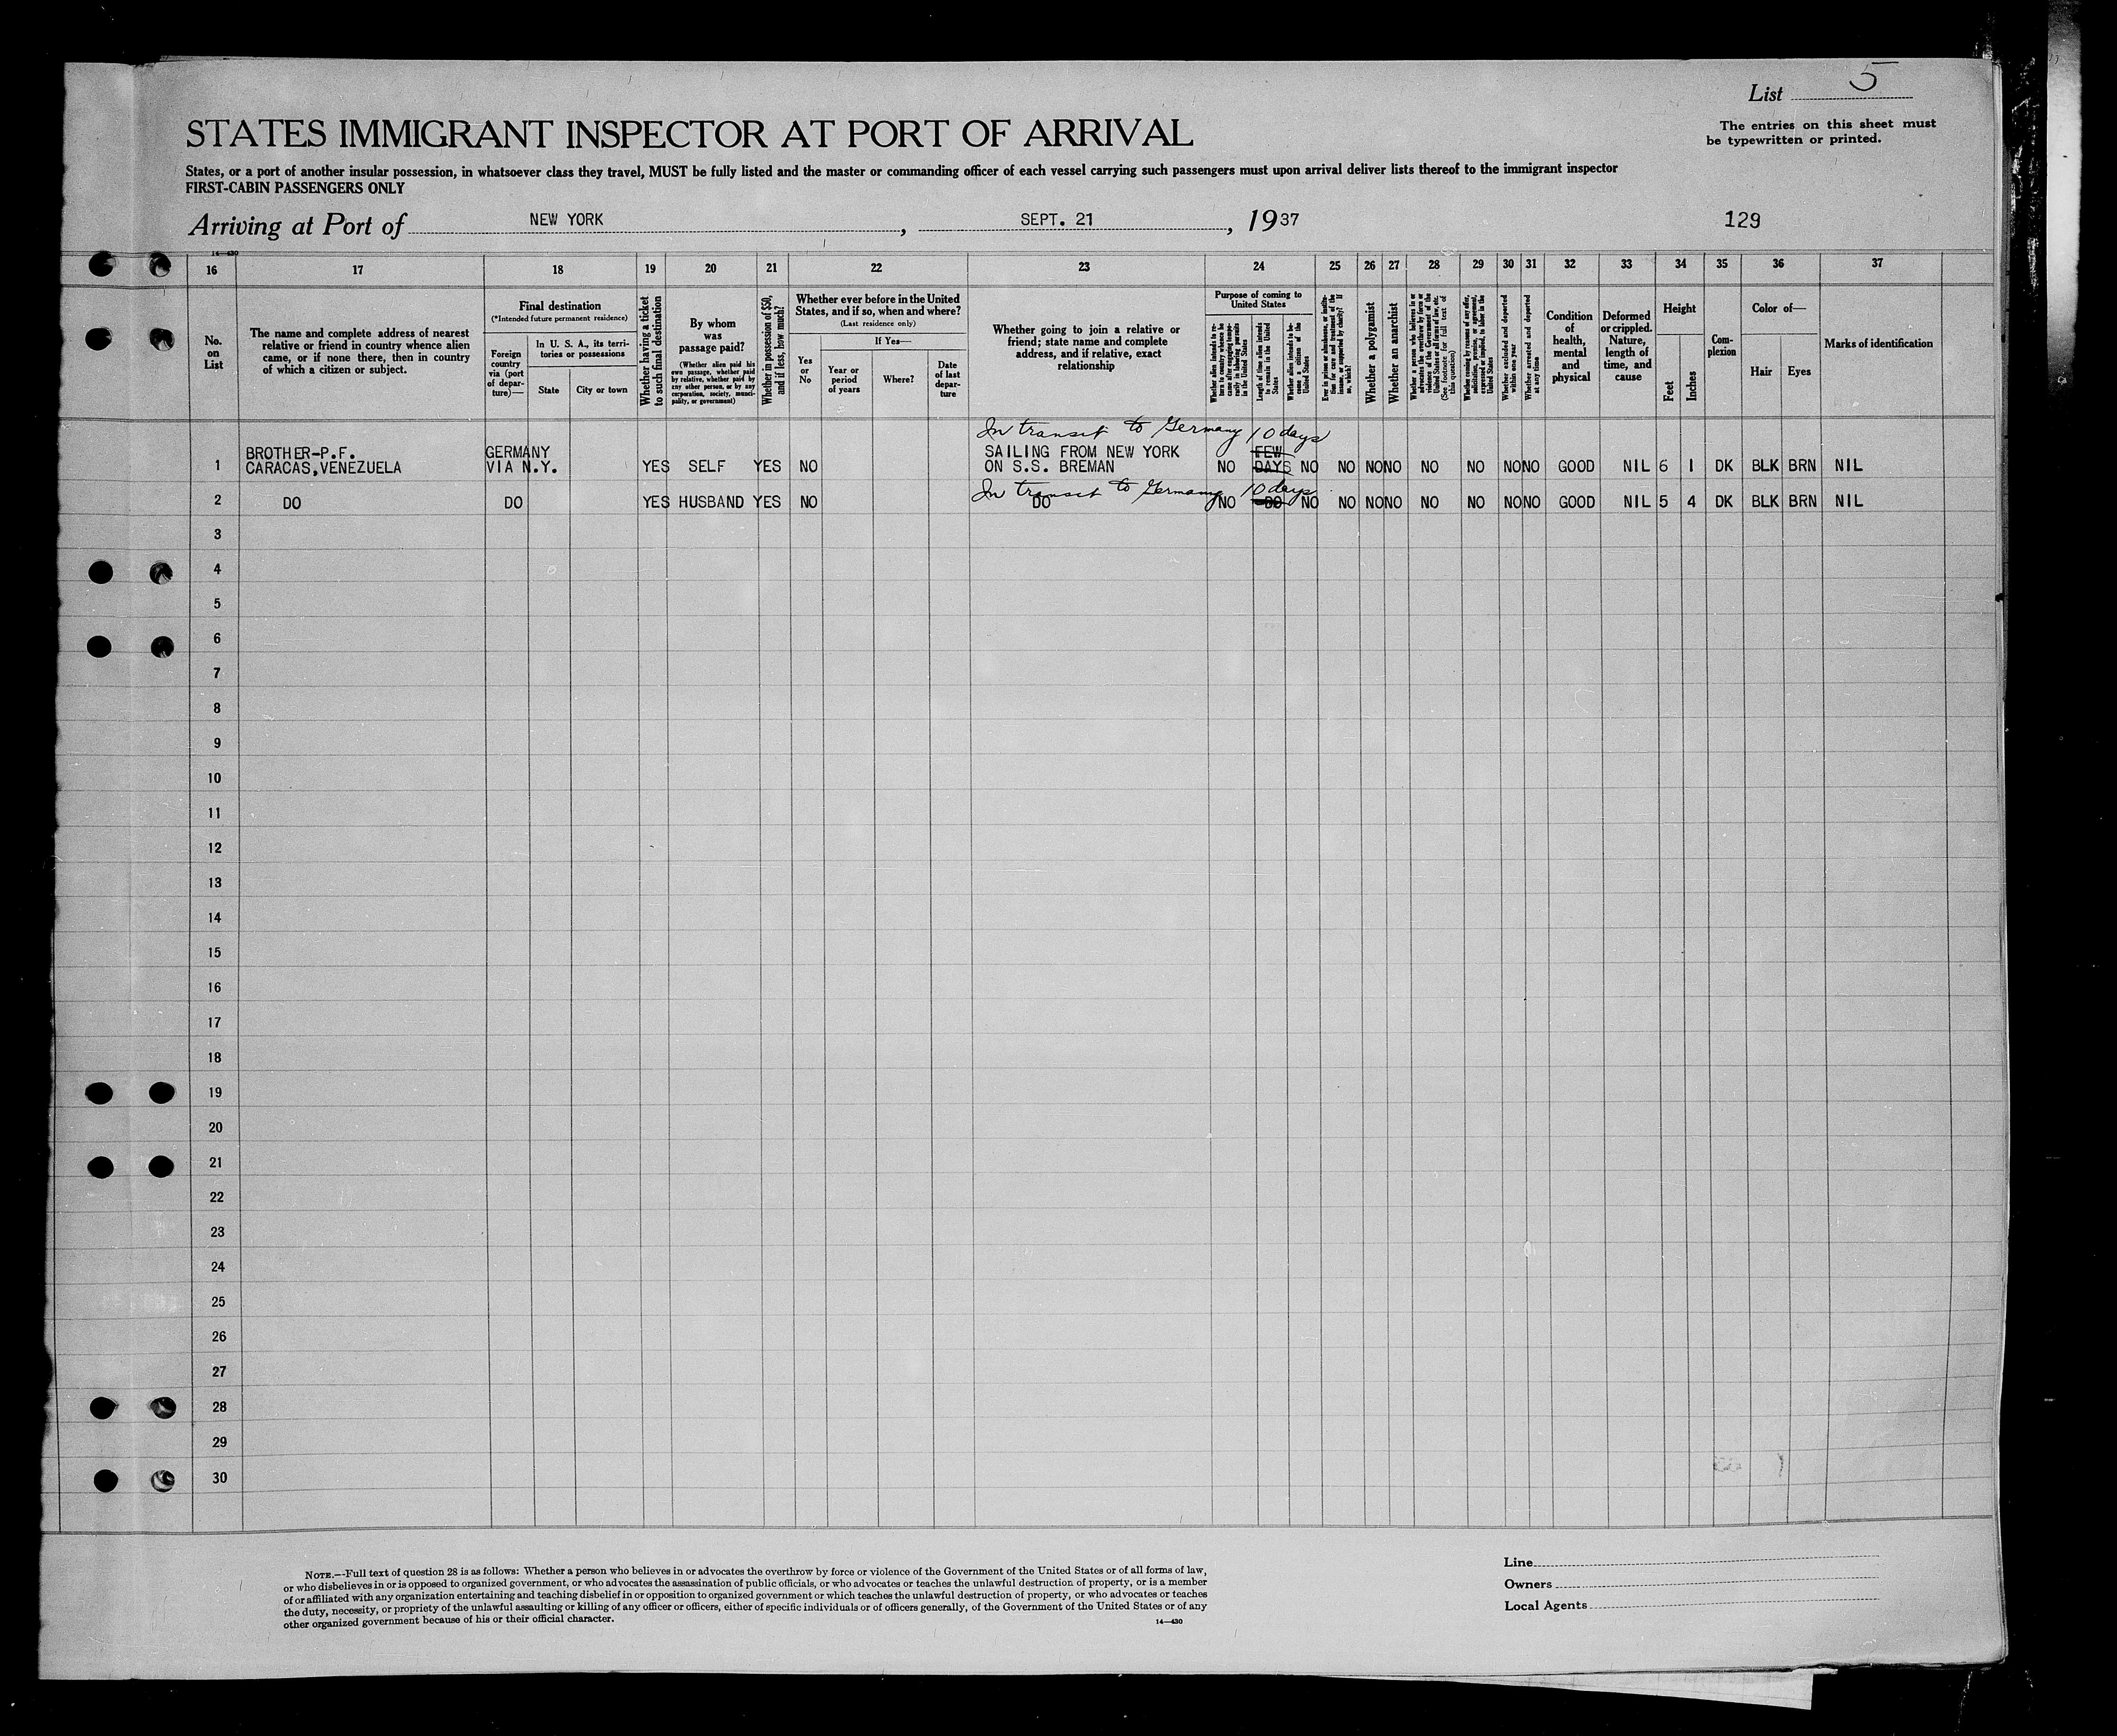 List 5
The entries on this sheet must
be typewritten or printed.
STATES IMMIGRANT INSPECTOR AT PORT OF ARRIVAL
States, or a port of another insular possession, in whatsoever class they travel, MUST be fully listed and the master or commanding officer of each vessel carrying such passengers must upon arrival deliver lists thereof to the immigrant inspector
FIRST-CABIN PASSENGERS ONLY
Arriving at Port of NEW YORK, SEPT. 21, 1937 129
14—430
16 17 18 19 20 21 22 23 24 25 26 27 28 29 30 31 32 33 34 35 36 37
No.
on
List
The name and complete address of nearest
relative or friend in country whence alien
came, or if none there, then in country
of which a citizen or subject.
Final destination
(*Intended future permanent residence)
Foreign
country
via (port
of depar-
ture)—
In U. S. A., its terri-
tories or possessions
State
City or town
Whether having a ticket
to such final destination
By whom
was
passage paid?
(Whether alien paid his
own passage, whether paid
by relative, whether paid by
any other person, or by any
corporation, society, munici-
pality, or government)
Whether in possession of $50,
and if less, how much?
Whether ever before in the United
States, and if so, when and where?
(Last residence only)
Yes
or
No
If Yes—
Year or
period
of years
Where?
Date
of last
depar-
ture
Whether going to join a relative or
friend; state name and complete
address, and if relative, exact
relationship
Purpose of coming to
United States
Whether alien intends to re-
turn to country whence he
came after engaging tempo-
rarily in laboring pursuits
in the United States
Length of time alien intends
to remain in the United
States
Whether alien intends to be-
come a citizen of the
United States
Ever in prison or almshouse, or institu-
tion for care and treatment of the
insane, or supported by charity? If
so, which?
Whether a polygamist
Whether an anarchist
Whether a person who believes in or
advocates the overthrow by force or
violence of the Government of the
United States or all forms of law, etc.
(See footnote for full text of
this question)
Whether coming by reason of any offer,
solicitation, promise, or agreement,
expressed or implied, to labor in the
United States
Whether excluded and deported
within one year
Whether arrested and deported
at any time
Condition
of
health,
mental
and
physical
Deformed
or crippled.
Nature,
length of
time, and
cause
Height
Feet
Inches
Com-
plexion
Color of—
Hair
Eyes
Marks of identification
In transit to Germany 10 days
BROTHER-P.F. GERMANY SAILING FROM NEW YORK FEW
1 CARACAS,VENEZUELA VIA N.Y. YES SELF YES NO ON S.S. BREMAN NO DAYS NO NO NO NO NO NO NO NO GOOD NIL 6 1 DK BLK BRN NIL
In transit to Germany 10 days
2 DO DO YES HUSBAND YES NO DO NO DO NO NO NO NO NO NO NO NO GOOD NIL 5 4 DK BLK BRN NIL
3
4
5
6
7
8
9
10
11
12
13
14
15
16
17
18
19
20
21
22
23
24
25
26
27
28
29
30
NOTE.—Full text of question 28 is as follows: Whether a person who believes in or advocates the overthrow by force or violence of the Government of the United States or of all forms of law,
or who disbelieves in or is opposed to organized government, or who advocates the assassination of public officials, or who advocates or teaches the unlawful destruction of property, or is a member
of or affiliated with any organization entertaining and teaching disbelief in or opposition to organized government or which teaches the unlawful destruction of property, or who advocates or teaches
the duty, necessity, or propriety of the unlawful assaulting or killing of any officer or officers, either of specific individuals or of officers generally, of the Government of the United States or of any
other organized government because of his or their official character.
14—430
Line
Owners
Local Agents